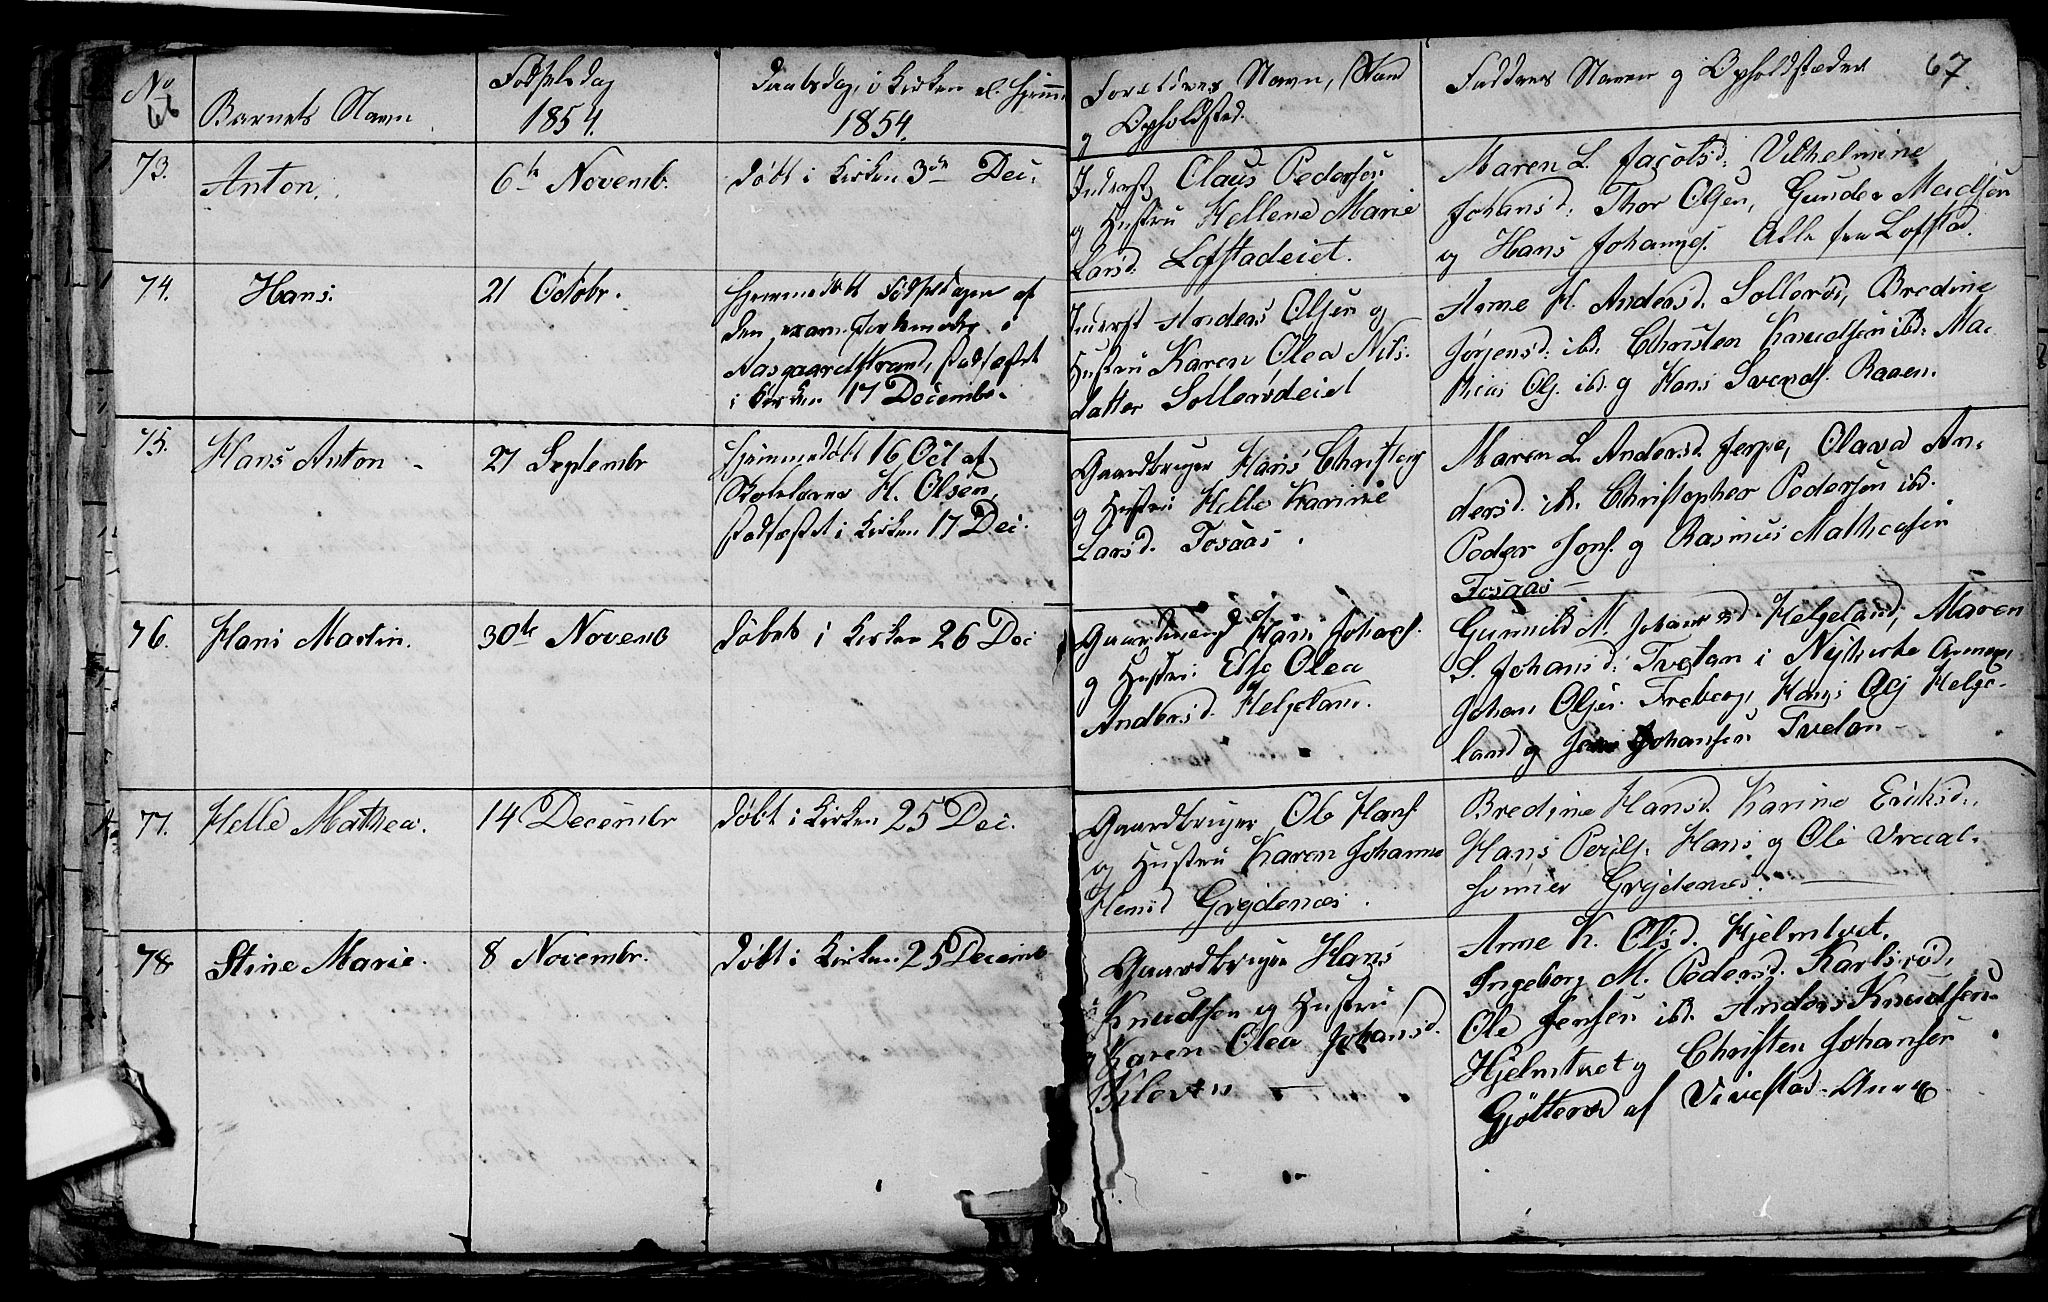 No
66
Barnets Navn
Fødselsdag
1854.
Daabsdag, i Kirken el. Hjem̄e
1854.
Forældres Navn, Stand
og Opholdsted.
Faddres Navne og Opholdsteder
67.
73.
Anton.
6te Novemb.
døbt i Kirken 3de Dec.
Inderst, Claus Pedersen
og Hustru Hellene Marie
Larsd. Lofstadeiet.
Maren L. Jacobsd. Vilhelmine
Johansd. Thor Olsen, Gunder Madsen
og Hans Johannes. Alle fra Lofstad.
74.
Hans.
21 Octobr.
Hjemmedøbt Fødselsdagen af
den exam. Jordemoder i
Aasgaardstrand, stadfæstet
i Kirken 17 Decembr.
Inderst Anders Olsen og
Hustru Karen Olea Nils-
datter Sollerødeiet
Anne H. Andersd. Sollerød, Bredine
Jørgensd. ibd. Christen Knudsen ibd. Ma-
thias Ols. ibd. og Hans Svends. Raaen.
75.
Hans Anton
27 Septembr
Hjemmedøbt 16 Oct af
Skolelærer H. Olsen,
stadfæstet i Kirken 17 Dec.
Gaardbruger Hans Christens
og Hustru Helle Karine
Larsd. Fosaas.
Maren L. Andersd. Jerpe, Olava An-
dersd. ib. Christopher Pedersen ibd.
Peder Jons. og Rasmus Matheasen
Fosaas
76.
Hans Martin.
30te Novemb
døbt i Kirken 26 Dec
Gaardmand Hans Johans.
og Hustru Else Olea
Andersd. Helgeland.
Gunnild M. Johansd. Helgeland, Maren
S. Johansd. Tvetan i Nykirke Annex,
Johan Olsen Freberg, Hans Ols Helge-
land og Johansen Tvetan
77.
Helle Mathea.
14 Decembr
døbt i Kirken 25 Dec.
Gaardbruger Ole Hans.
og Hustru Karen Johanne
Hansd Grydenæs.
Bredine Hansd. Karine Eriksd.,
Hans Hans og Ole
Grydenæs.
78
Stine Marie.
8 Novembr.
døbt i Kirken 25 Decemb
Gaardbruger Hans
Knudsen og Hustru
Karen Olea Johansd.
Anne K. Olsd. Hjelmtvet,
Ingeborg M. Pedersd. Karlsrød,
Ole Jensen ibd. Anders Knudsen
Hjelmtvet og Christen Johansen
Gjøtterød af Vivestad Annex